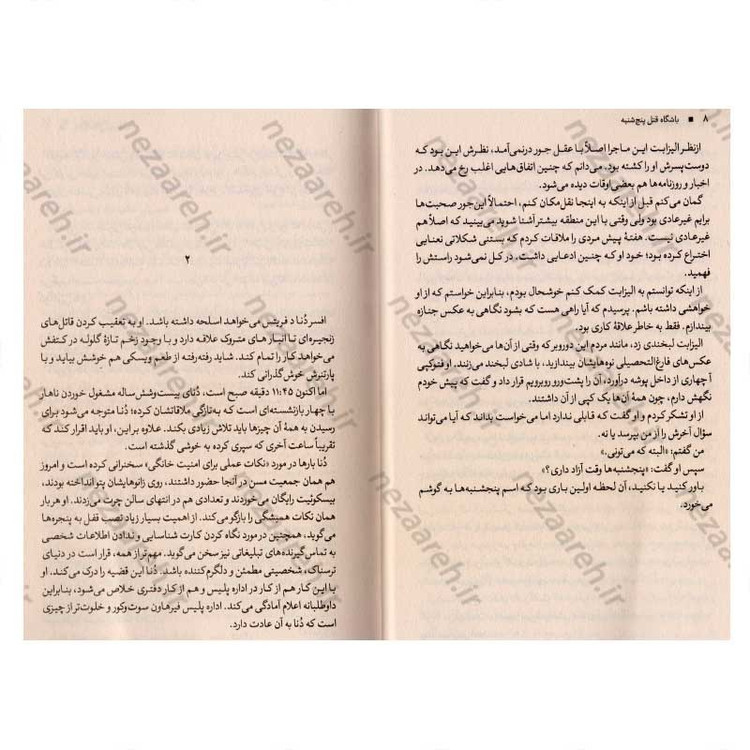 ۸ ■ باشگاه قتل پنج‌شنبه
ازنظر الیزابت این ماجرا اصلاً با عقل جور درنمی‌آمد، نظرش این بود که
دوست‌پسرش او را کشته بود. می‌دانم که چنین اتفاق‌هایی اغلب رخ می‌دهد. در
اخبار و روزنامه‌ها هم بعضی اوقات دیده می‌شود.
گمان می‌کنم قبل از اینکه به اینجا نقل‌مکان کنم، احتمالاً این‌جور صحبت‌ها
برایم غیرعادی بود ولی وقتی با این منطقه بیشتر آشنا شوید می‌بینید که اصلاً هم
غیرعادی نیست. هفتهٔ پیش مردی را ملاقات کردم که بستنی شکلاتی نعنایی
اختراع کرده بود؛ خود او که چنین ادعایی داشت. در کل نمی‌شود راستش را
فهمید.
از اینکه توانستم به الیزابت کمک کنم خوشحال بودم، بنابراین خواستم که از او
خواهشی داشته باشم. پرسیدم که آیا راهی هست که بشود نگاهی به عکس جنازه
بیندازم. فقط به خاطر علاقهٔ کاری بود.
الیزابت لبخندی زد، مانند مردم این دوروبر که وقتی از آن‌ها می‌خواهید نگاهی به
عکس‌های فارغ‌التحصیلی نوه‌هایشان بیندازید، با شادی لبخند می‌زنند. او فتوکپی
آ چهاری از داخل پوشه درآورد، آن را پشت‌ورو روبرویم قرار داد و گفت که پیش خودم
نگهش دارم، چون همهٔ آن‌ها یک کپی از آن داشتند.
از او تشکر کردم و او گفت که قابلی ندارد اما می‌خواست بداند که آیا می‌تواند
سؤال آخرش را از من بپرسد یا نه.
من گفتم، «البته که می‌تونی.»
سپس او گفت: «پنجشنبه‌ها وقت آزاد داری؟»
باور کنید یا نکنید، آن لحظه اولین باری بود که اسم پنجشنبه‌ها به گوشم
می‌خورد.
۲
افسر دُنا د فریتس می‌خواهد اسلحه داشته باشد. او به تعقیب کردن قاتل‌های
زنجیره‌ای تا انبارهای متروک علاقه دارد و با وجود زخم تازهٔ گلوله در کتفش
می‌خواهد کار را تمام کند. شاید رفته‌رفته از طعم ویسکی هم خوشش بیاید و با
پارتنرش خوش‌گذرانی کند.
اما اکنون ۱۱:۴۵ دقیقه صبح است، دُنای بیست‌وشش‌ساله مشغول خوردن ناهار
با چهار بازنشسته‌ای است که به‌تازگی ملاقاتشان کرده؛ دُنا متوجه می‌شود برای
رسیدن به همهٔ آن چیزها باید تلاش زیادی بکند. علاوه بر این، او باید اقرار کند که
تقریباً ساعت آخری که سپری کرده به خوشی گذشته است.
دُنا بارها در مورد «نکات عملی برای امنیت خانگی» سخنرانی کرده است و امروز
هم همان جمعیت مسن در آنجا حضور داشتند، روی زانوهایشان پتو انداخته بودند،
بیسکوئیت رایگان می‌خوردند و تعدادی هم در انتهای سالن چرت می‌زدند. او هر بار
همان نکات همیشگی را بازگو می‌کند. از اهمیت بسیار زیاد نصب قفل به پنجره‌ها
می‌گوید، همچنین در مورد نگاه کردن کارت شناسایی و ندادن اطلاعات شخصی
به تماس‌گیرنده‌های تبلیغاتی نیز سخن می‌گوید. مهم‌تر از همه، قرار است در دنیای
ترسناک، شخصیتی مطمئن و دلگرم‌کننده باشد. دُنا این قضیه را درک می‌کند. او
با این کار هم از کار در اداره پلیس و هم از کار دفتری خلاص می‌شود، بنابراین
داوطلبانه اعلام آمادگی می‌کند. اداره پلیس فیرهاون سوت‌وکور و خلوت‌تر از چیزی
است که دُنا به آن عادت دارد.
nezaareh.ir
nezaareh.ir
nezaareh.ir
nezaareh.ir
nezaareh.ir
nezaareh.ir
nezaareh.ir
nezaareh.ir